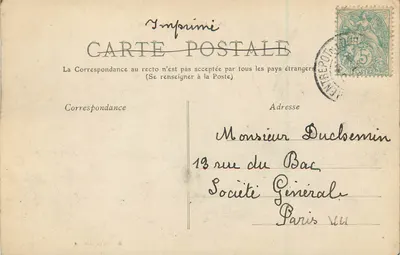 Imprimé
CARTE POSTALE
La Correspondance au recto n'est pas acceptée par tous les pays étrangers
(Se renseigner à la Poste)
Correspondance
Adresse
Monsieur Duchemin
13 rue du Bac
Société Général
Paris
5